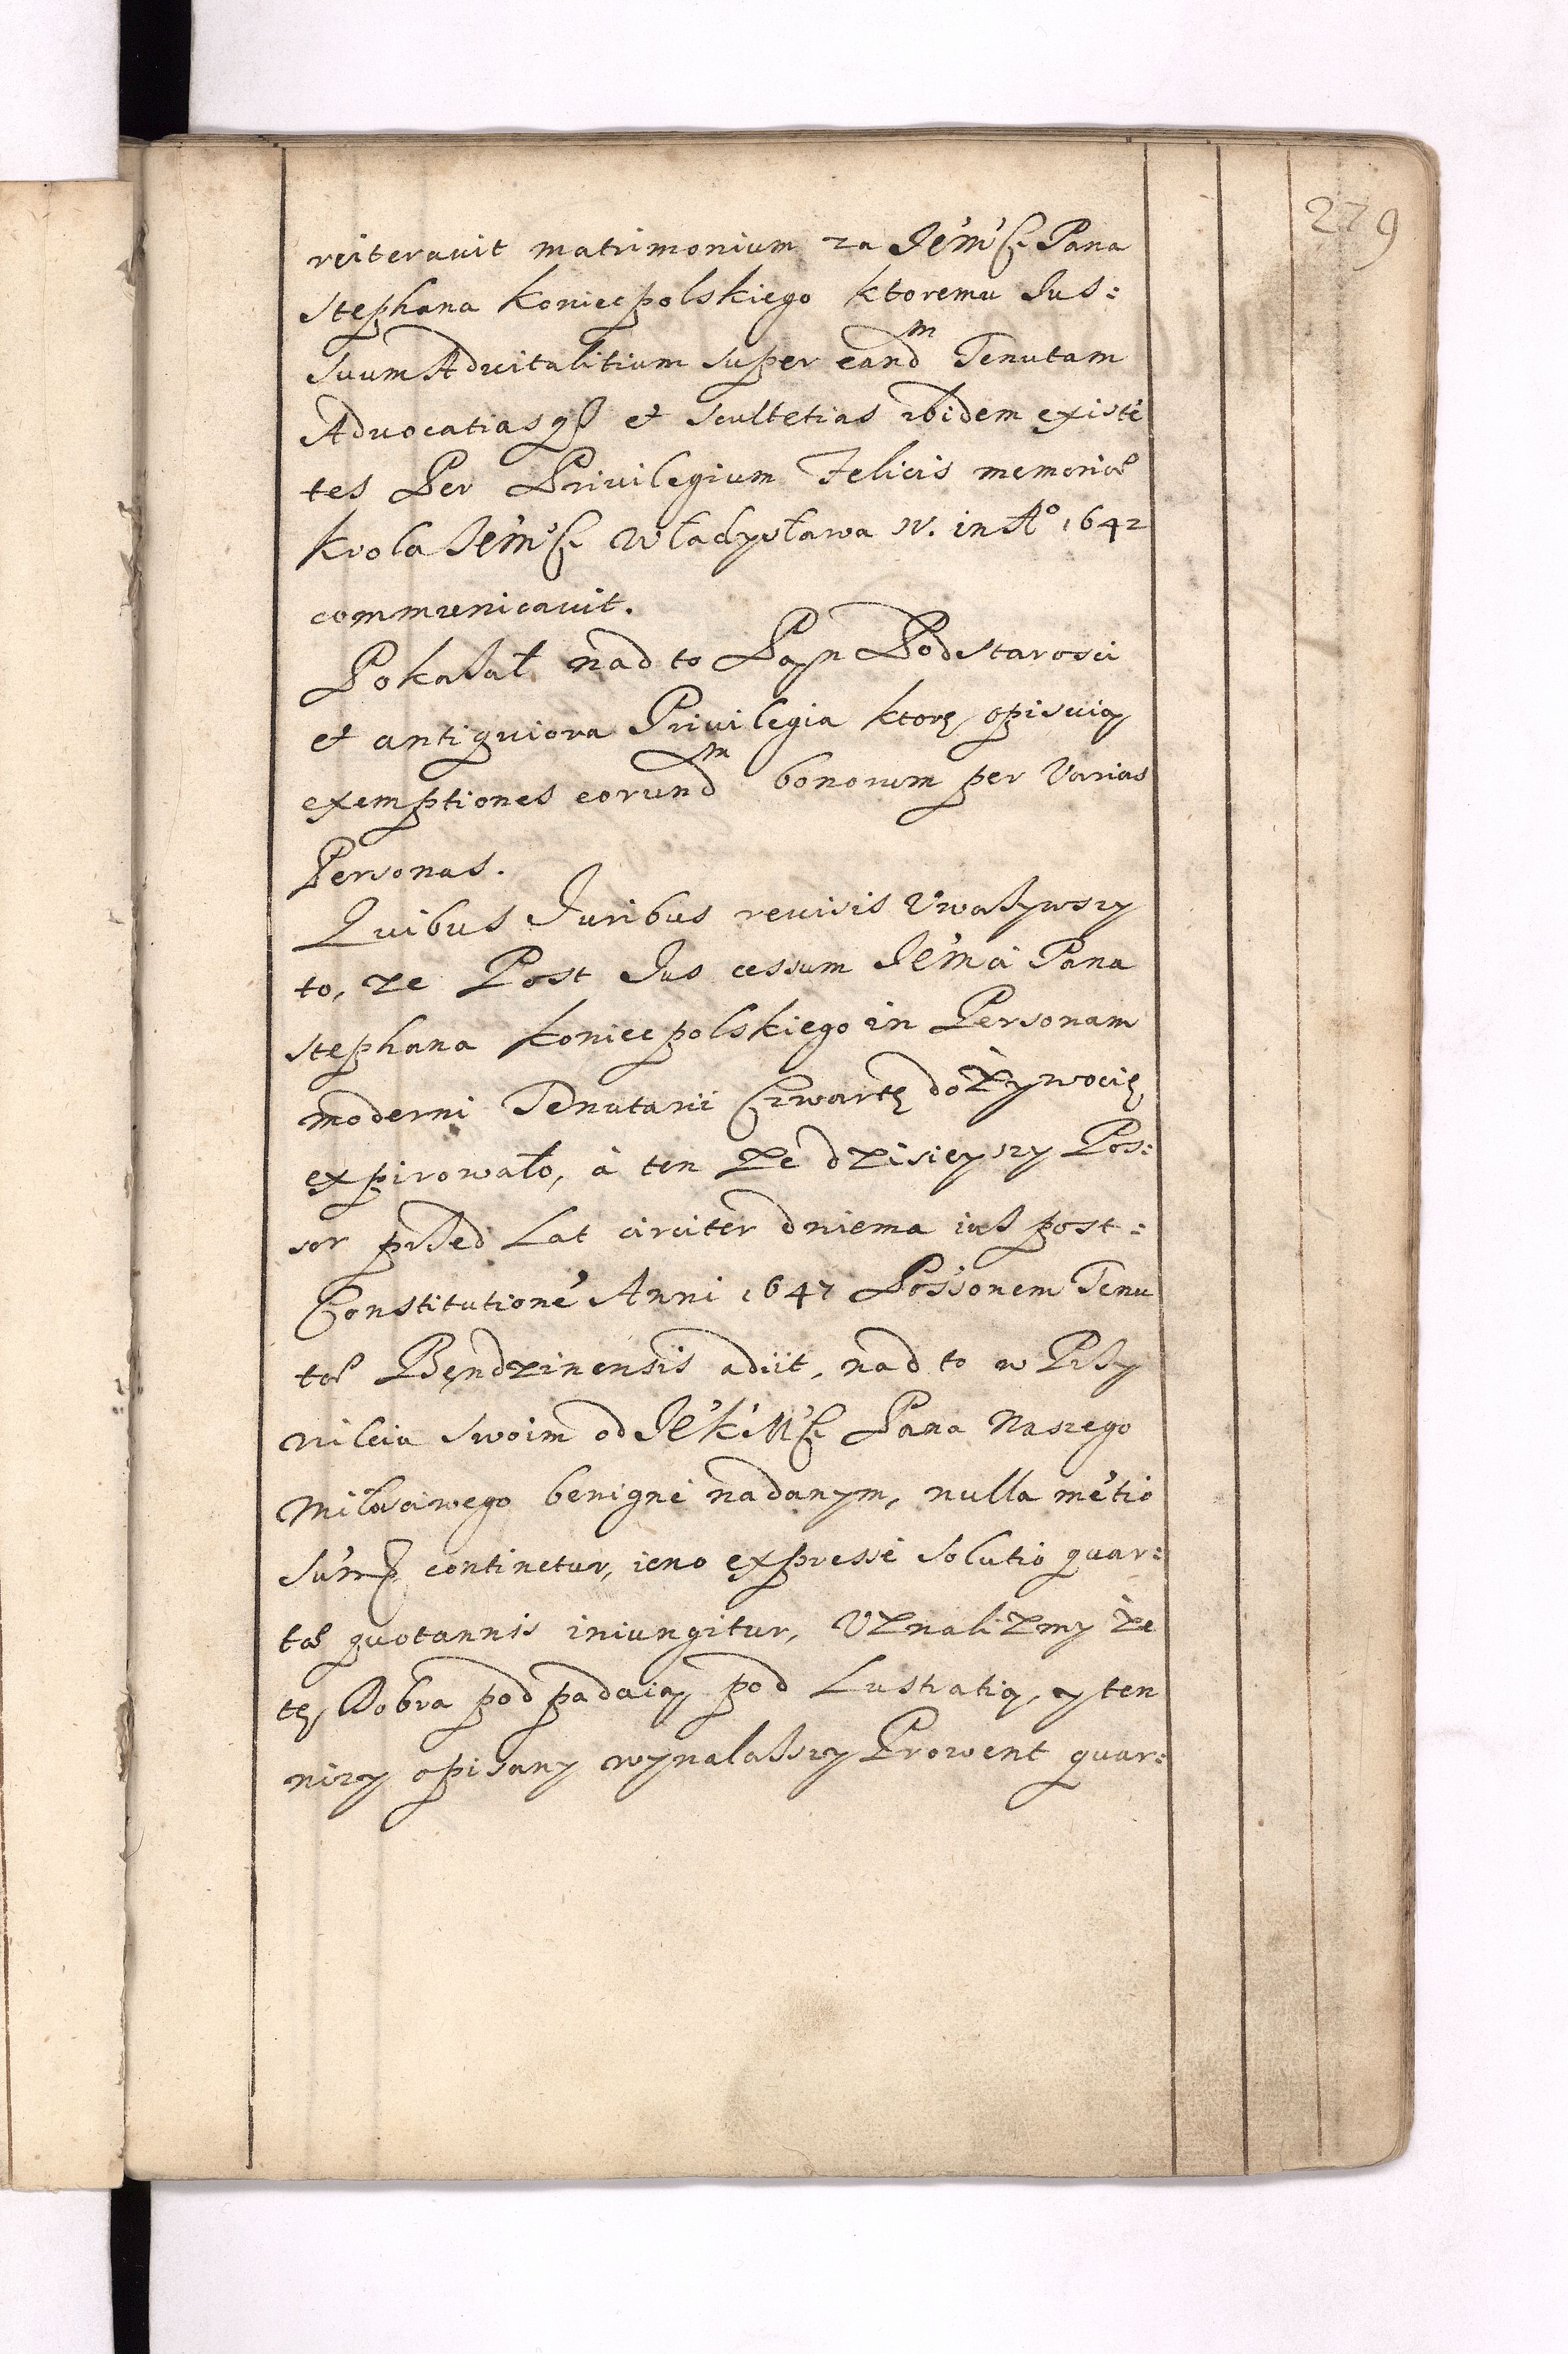 279
reiterauit matrimonium za Je'm'ści Pana
Stephana koniecpolskiego ktoremu Jus:
suum Aduitalitium super eandm Tenutam
Aduocatiasq3 et Scultetias ibidem existē
tes Per Priuilegium Felicis memoriæ
krola Je'm'ści Władysława IV. in Aº 1642
communicauit.
Pokazał nad to Pąn Podstarosci
et antiquiora Priuilegia ktorę opisuią
exemptiones eorundm bonorum per Varias
Personas.
Quibus Juribus reuisis Vważywszy
to, ze Post Jus cessum Je'mci Pana
Stephana koniecpolskiego in Personam
moderni Tenutarii Czwartę dożywocię
expirowało, à ten ze dzisieyszy Pos:
sor przed Lat circiter dwiema iuż post:
Constitutione' Anni 1647 Pos'sonem Tenu
tæ Bęndzinensis adiit, nad to w Przy
wileiu swoim od Je'k'M'ści Pana Naszego
Miłosciwego benignè nadanym, nulla me'tio
su'mæ continetur, ieno expressè solutio quar:
tæ quotannis iniungitur, Vznalizmy że
tę Dobra podpadaią pod Lustratią, y ten
nizy opisany wynalazszy Prowent quar: